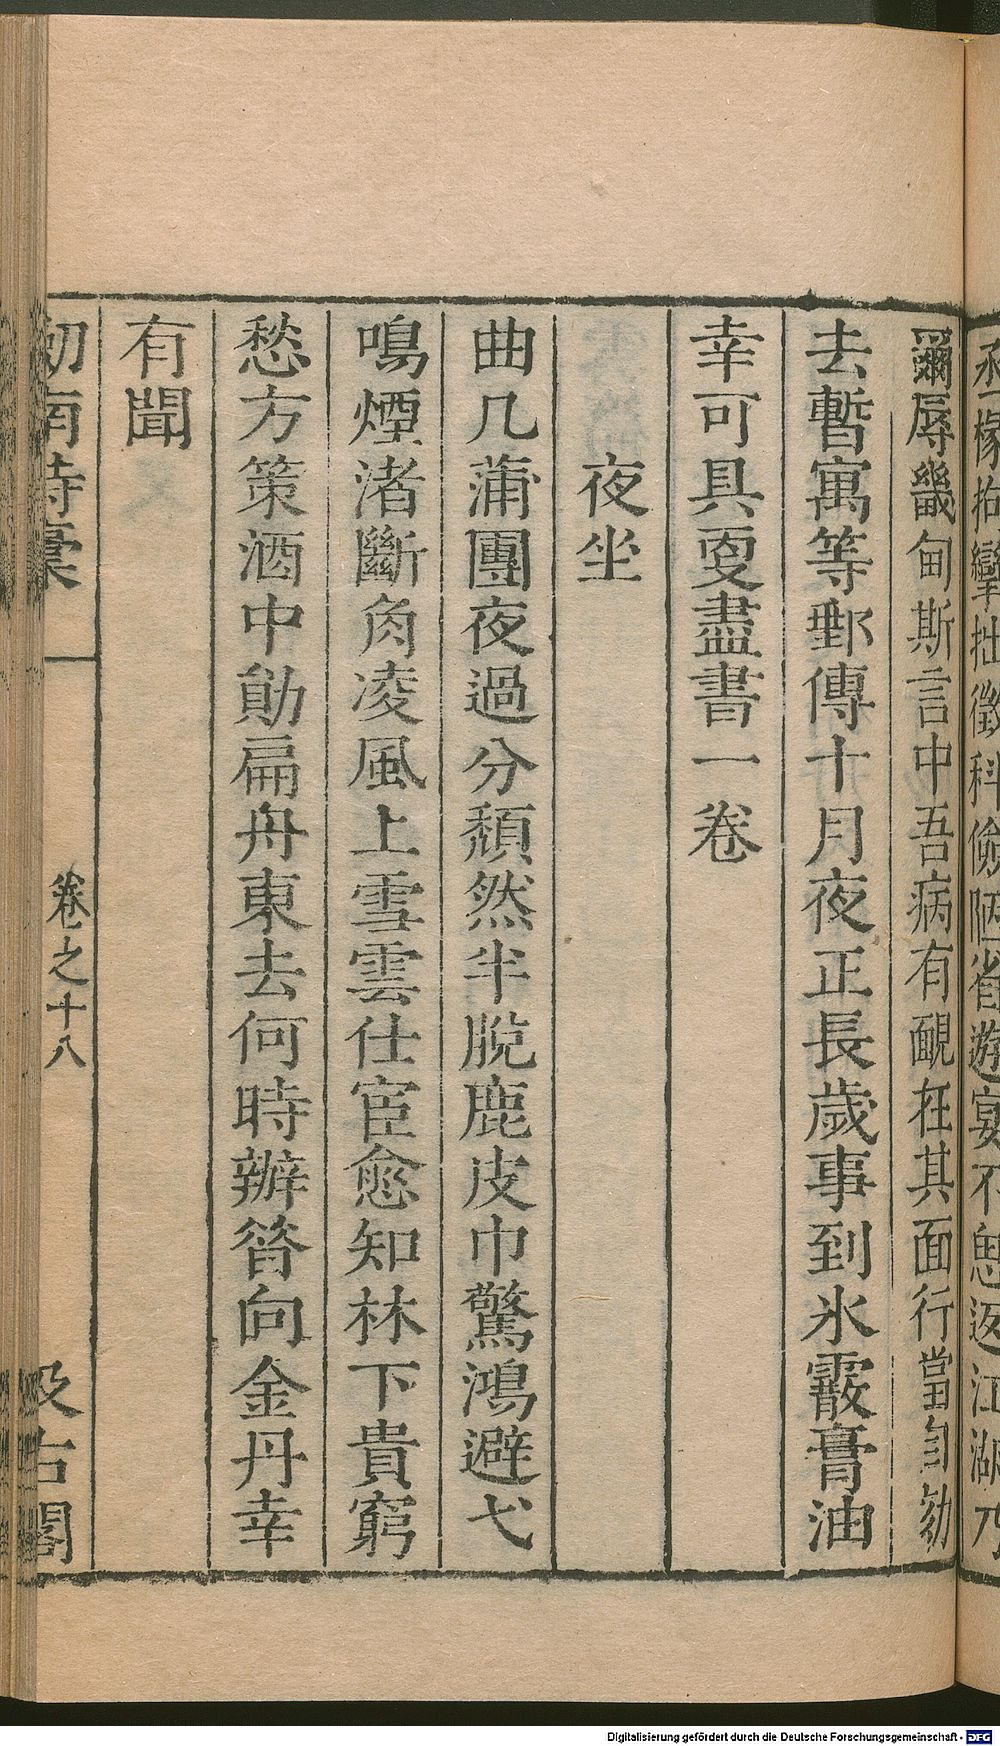 承檄拘攣拙徵科儉陋省遊宴不思返江湖乃
彌辱畿甸斯言中吾病有靦在其面行當自劾
去暫寓等郵傳十月夜正長歲事到氷霰膏油
幸可具更盡書一卷
夜坐
曲几蒲團夜過分頹然半脫鹿皮巾驚鴻避弋
鳴煙渚斷角凌風上雪雲仕宦愈知林下貴窮
愁方策酒中勛扁舟東去何時辦筩向金丹幸
有聞
劎南詩稾
卷之十八
汲古閣
Digitalisierung gefördert durch die Deutsche Forschungsgemeinschaft - DFG